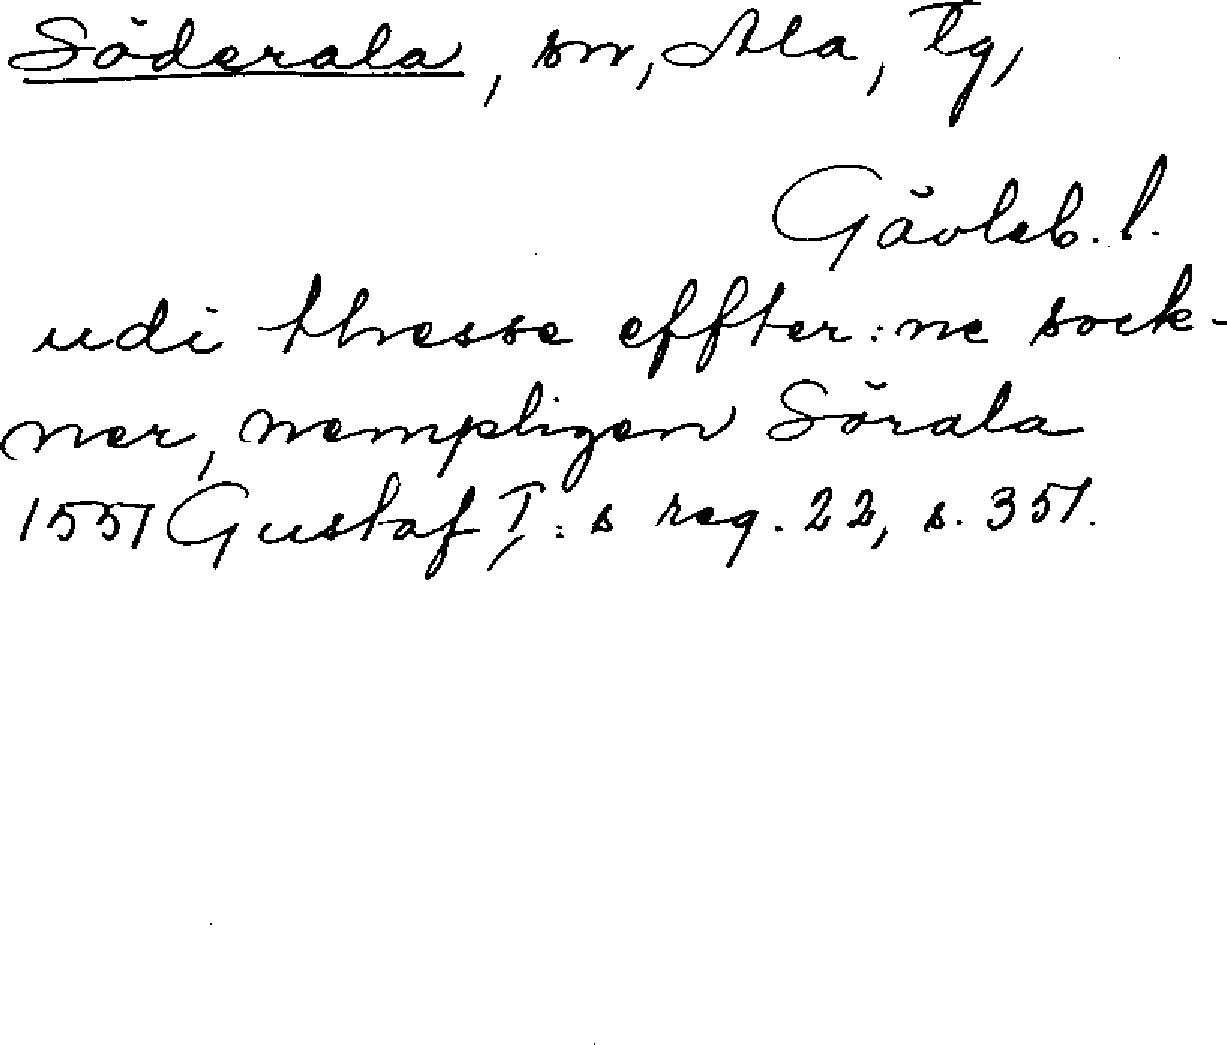 Söderala, sn, Ala, Tg,
Gävleb. l.
udi thesse effter:ne sock-
ner, nempligen Sörala
1551 Gustaf I:s reg. 22, s. 351.